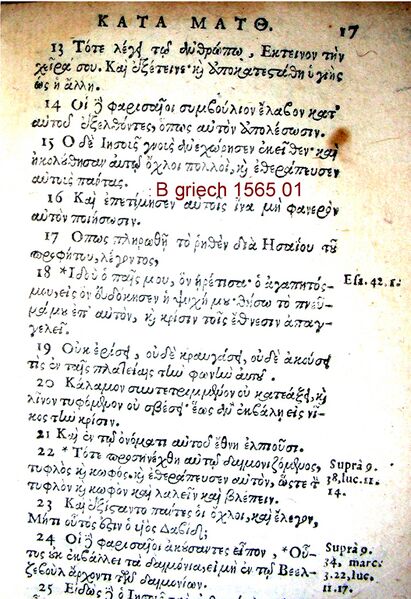 ΚΑΤΑ ΜΑΤΘ. 17
13 Τότε λέγει τῷ ἀνθρώπῳ, Εκτεινον τὴν
χεῖρά σου. Καὶ ἐξέτεινε· καὶ ἀποκατεστάθη ὑγιὴς
ὡς ἡ ἄλλη.
14 Οἱ δὲ φαρισαῖοι συμβούλιον ἔλαβον κατ'
αὐτοῦ ἐξελθόντες, ὅπως αὐτὸν ἀπολέσωσιν.
15 Ο δὲ Ιησοῦς γνοὺς ἀνεχώρησεν ἐκεῖθεν· καὶ
ἠκολούθησαν αὐτῷ ὄχλοι πολλοί, καὶ ἐθεράπευσεν
αὐτοὺς πάντας.
: B griech 1565 01
16 Καὶ ἐπετίμησεν αὐτοῖς ἵνα μὴ φανερὸν
αὐτὸν ποιήσωσιν.
17 Οπως πληρωθῇ τὸ ῥηθὲν διὰ Ησαΐου τοῦ
προφήτου, λέγοντος,
18 *Ιδοὺ ὁ παῖς μου, ὃν ᾑρέτισα· ὁ ἀγαπητός Esa. 42.1.
μου, εἰς ὃν εὐδόκησεν ἡ ψυχή μου· θήσω τὸ πνεῦ-
μά μου ἐπ' αὐτὸν, καὶ κρίσιν τοῖς ἔθνεσιν ἀπαγ-
γελεῖ.
19 Οὐκ ἐρίσει, οὐδὲ κραυγάσει, οὐδὲ ἀκούσει
τὶς ἐν ταῖς πλατείαις τὴν φωνὴν αὐτοῦ.
20 Κάλαμον συντετριμμένον οὐ κατεάξει, καὶ
λῖνον τυφόμενον οὐ σβέσει· ἕως ἂν ἐκβάλῃ εἰς νῖ-
κος τὴν κρίσιν.
21 Καὶ ἐν τῷ ὀνόματι αὐτοῦ ἔθνη ἐλπιοῦσι.
22 * Τότε προσηνέχθη αὐτῷ δαιμονιζόμενος, Suprà 9.
τυφλὸς καὶ κωφός· καὶ ἐθεράπευσεν αὐτὸν, ὥστε τὸν 38, luc. 11.
τυφλὸν καὶ κωφὸν καὶ λαλεῖν καὶ βλέπειν. 14.
23 Καὶ ἐξίσταντο πάντες οἱ ὄχλοι, καὶ ἔλεγον,
Μήτι οὗτός ἐστιν ὁ υἱὸς Δαβίδ;
24 Οἱ δὲ φαρισαῖοι ἀκούσαντες εἶπον, *Οὗ- Suprà 9.
τος οὐκ ἐκβάλλει τὰ δαιμόνια, εἰ μὴ ἐν τῷ Βεελ- 34, marc.
ζεβοὺλ ἄρχοντι τῶν δαιμονίων. 3.22, luc.
25 Εἰδὼς δὲ ὁ Ιησοῦς 11.17.